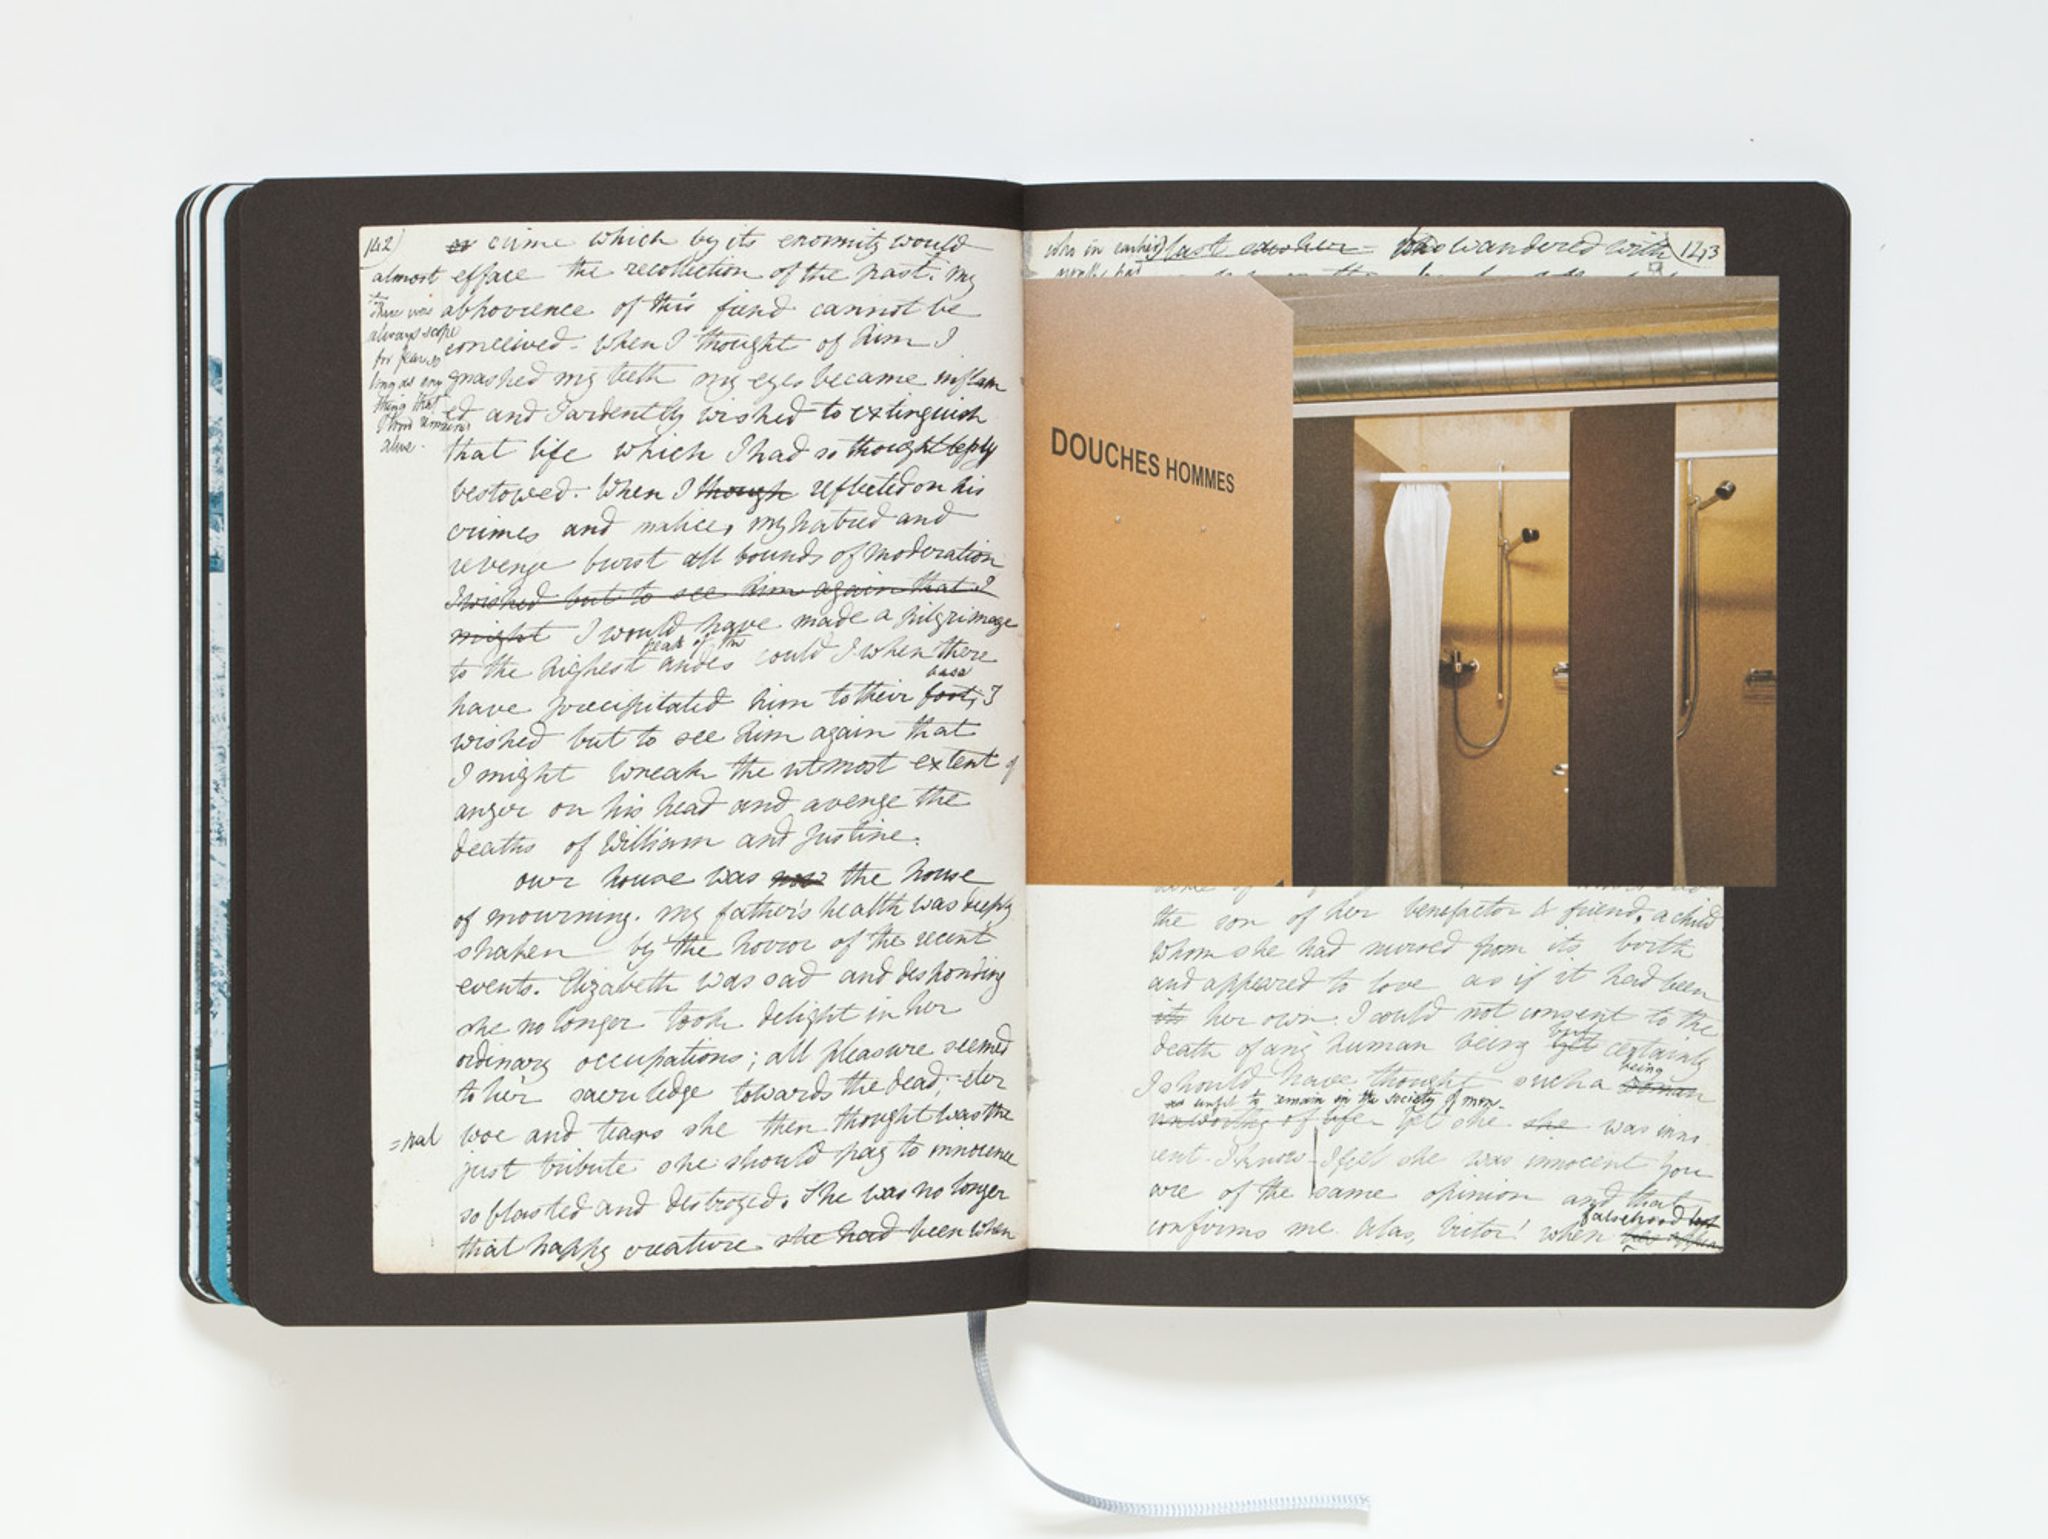 142)
or crime which by its enormity would
almost efface the recollection of the past. my
there was
always scope
for fear so
long as any
thing that
I loved remained
alive.
abhorrence of this fiend cannot be
conceived - When I thought of him I
gnashed my teeth my eyes became inflam
ed and I ardently wished to extinguish
that life which I had so thoughtlessly
bestowed. When I though reflected on his
crimes and malice, my hatred and
revenge burst all bounds of moderation
I wished but to see him again that I
might I would have made a pilgrimage
peak of the
to the highest andes could I when there
base
have precipitated him to their foot, I
wished but to see him again that
I might wreak the utmost extent of
anger on his head and avenge the
deaths of William and Justine.
our house was now the house
of mourning. my father's health was deeply
shaken by the horror of the recent
events. Elizabeth was sad and desponding
she no longer took delight in her
ordinary occupations; all pleasure seemed
to her sacriledge towards the dead; eter
=nal woe and tears she then thought was the
just tribute she should pay to innocence
so blasted and destroyed. She was no longer
that happy creature she had been when
who in earlier last saw her - who wandered with 143
DOUCHES HOMMES
the son of her benefactor & friend, a child
whom she had nursed from its birth
and appeared to love as if it had been
its her own. I could not consent to the
but
death of any human being yet certainly
being
I should have thought such a woman
unfit to remain in the society of men.
unworthy of life - Yet she she was inno
cent. I know I feel she was innocent you
are of the same opinion and that
falsehood
confirms me. Alas, Victor! when